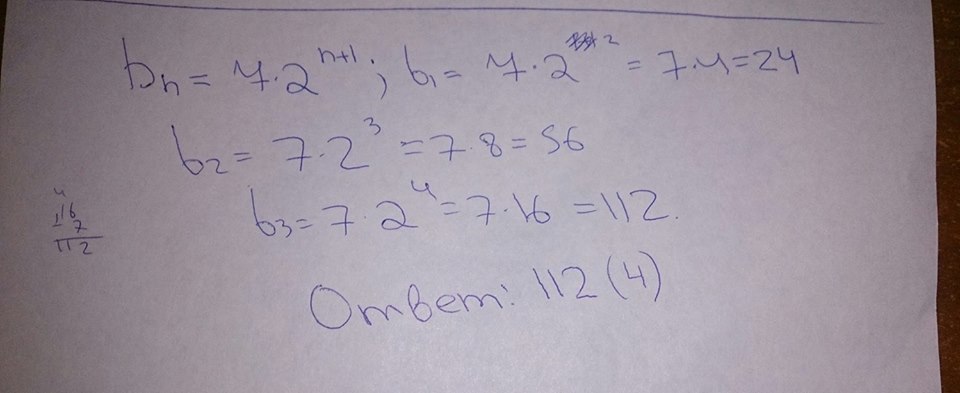 bn = 7·2^n+1; b1 = 7·2^2 = 7·4=24
b2 = 7·2^3 = 7·8 = 56
b3 = 7·2^4 = 7·16 = 112.
4
16
7
112
Ответ: 112 (4)